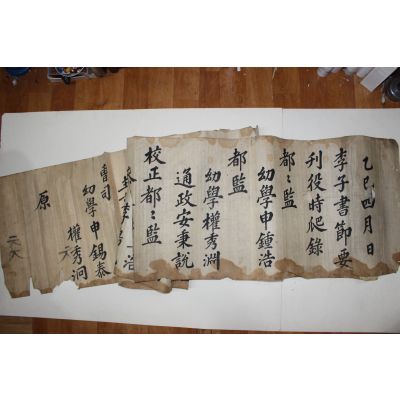 乙巳四月日
李子書節要
刊役時爬錄
都〻監
幼學申鍾浩
都監
幼學權秀淵
通政安秉說
校正都〻監
曹司
幼學申錫泰
權秀洞
原